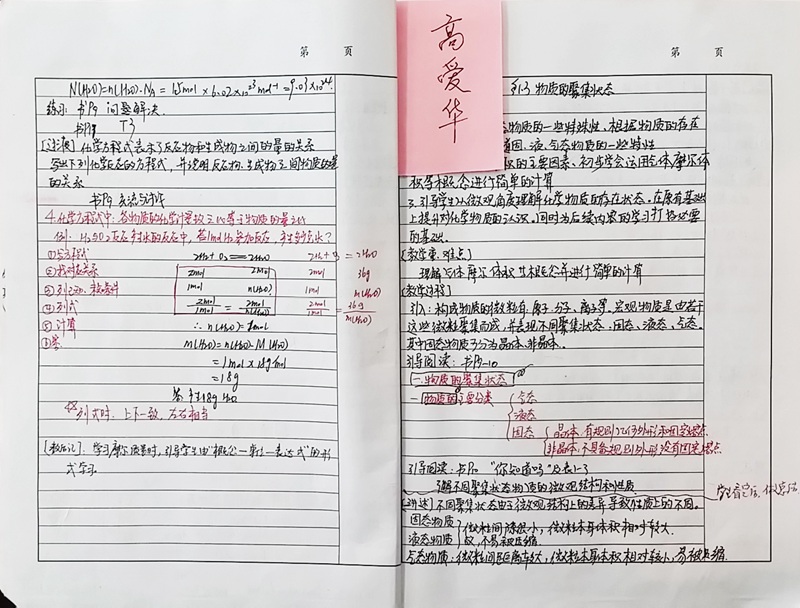 第 页
N(H₂O)=n(H₂O)·NA = 15mol × 6.02×10²³ mol⁻¹ = 9.03×10²⁴
练习: 书P9 问题解决.
书P18 T3
化学方程式表示了反应物和生成物之间的量的关系
写出下列化学反应的方程式, 并说明反应物、生成物之间物质的量
的关系
书P9 交流与讨论
4. 化学方程式中: 各物质的化学计量数之比等于物质的量之比
例: H₂与O₂反应生成水的反应中, 若1mol H₂参加反应, 产生多少水?
①写方程式 2H₂ + O₂ = 2H₂O
②找对应关系 2mol 2mol 2mol 36g
③列已知、找条件 1mol n(H₂O) 1mol m(H₂O)
④列式 2mol/1mol = 2mol/n(H₂O) 2mol/1mol = 36g/m(H₂O)
⑤计算 ∴ n(H₂O) = 1mol
⑥答 M(H₂O)=n(H₂O)·M(H₂O)
= 1mol × 18g·mol
= 18g
答: 生成18g H₂O
列式时, 上下一致, 左右相当
[教后记]: 学习摩尔质量时, 引导学生由"概念—单位—表达式"的形
式学习.
第 页
高爱华
§1.3 物质的聚集状态
态物质的一些特殊性, 根据物质的存在
因. 液、气态物质的一些特性
积的主要因素、初步学会运用气体摩尔体
积等概念进行简单的计算
3. 引导学生从微观角度理解化学物质的存在状态. 在原有基础
上提升对化学物质的认识. 同时为后续内容的学习打好必要
的基础.
[教学重、难点]
理解气体摩尔体积等概念并进行简单的计算
[教学过程]
引入: 构成物质的微粒有: 原子、分子、离子等. 宏观物质是由若干
这些微粒聚集而成, 并表现不同聚集状态. 固态、液态、气态.
其中固态物质可分为晶体、非晶体.
引导阅读: 书P9-10
一. 物质的聚集状态
一. 物质的主要分类 气态
液态
固态 晶体: 有规则的几何外形和固定熔点
非晶体: 不具备规则外形 没有固定熔点
引导阅读: 书P10 "你知道吗" 及表1-3
了解不同聚集状态物质的微观结构和性质.
[讲述] 不同聚集状态由于微观结构上的差异导致性质上的不同.
固态物质 微粒间隙很小, 微粒本身体积相对较大.
液态物质 故, 不易被压缩
气态物质: 微粒间距离较大, 微粒本身体积相对较小, 易被压缩.